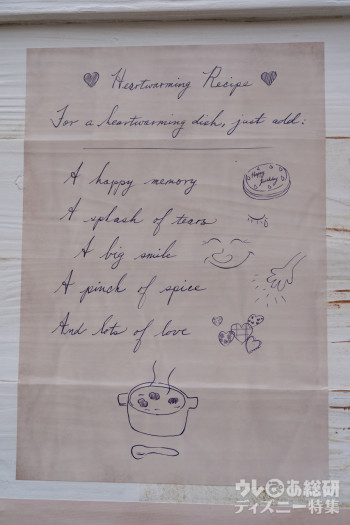 Heartwarming Recipe
For a heartwarming dish, just add:
A happy memory
Happy
Birthday
A splash of tears
A big smile
A pinch of spice
And lots of love
ウレぴあ総研
ディズニー特集